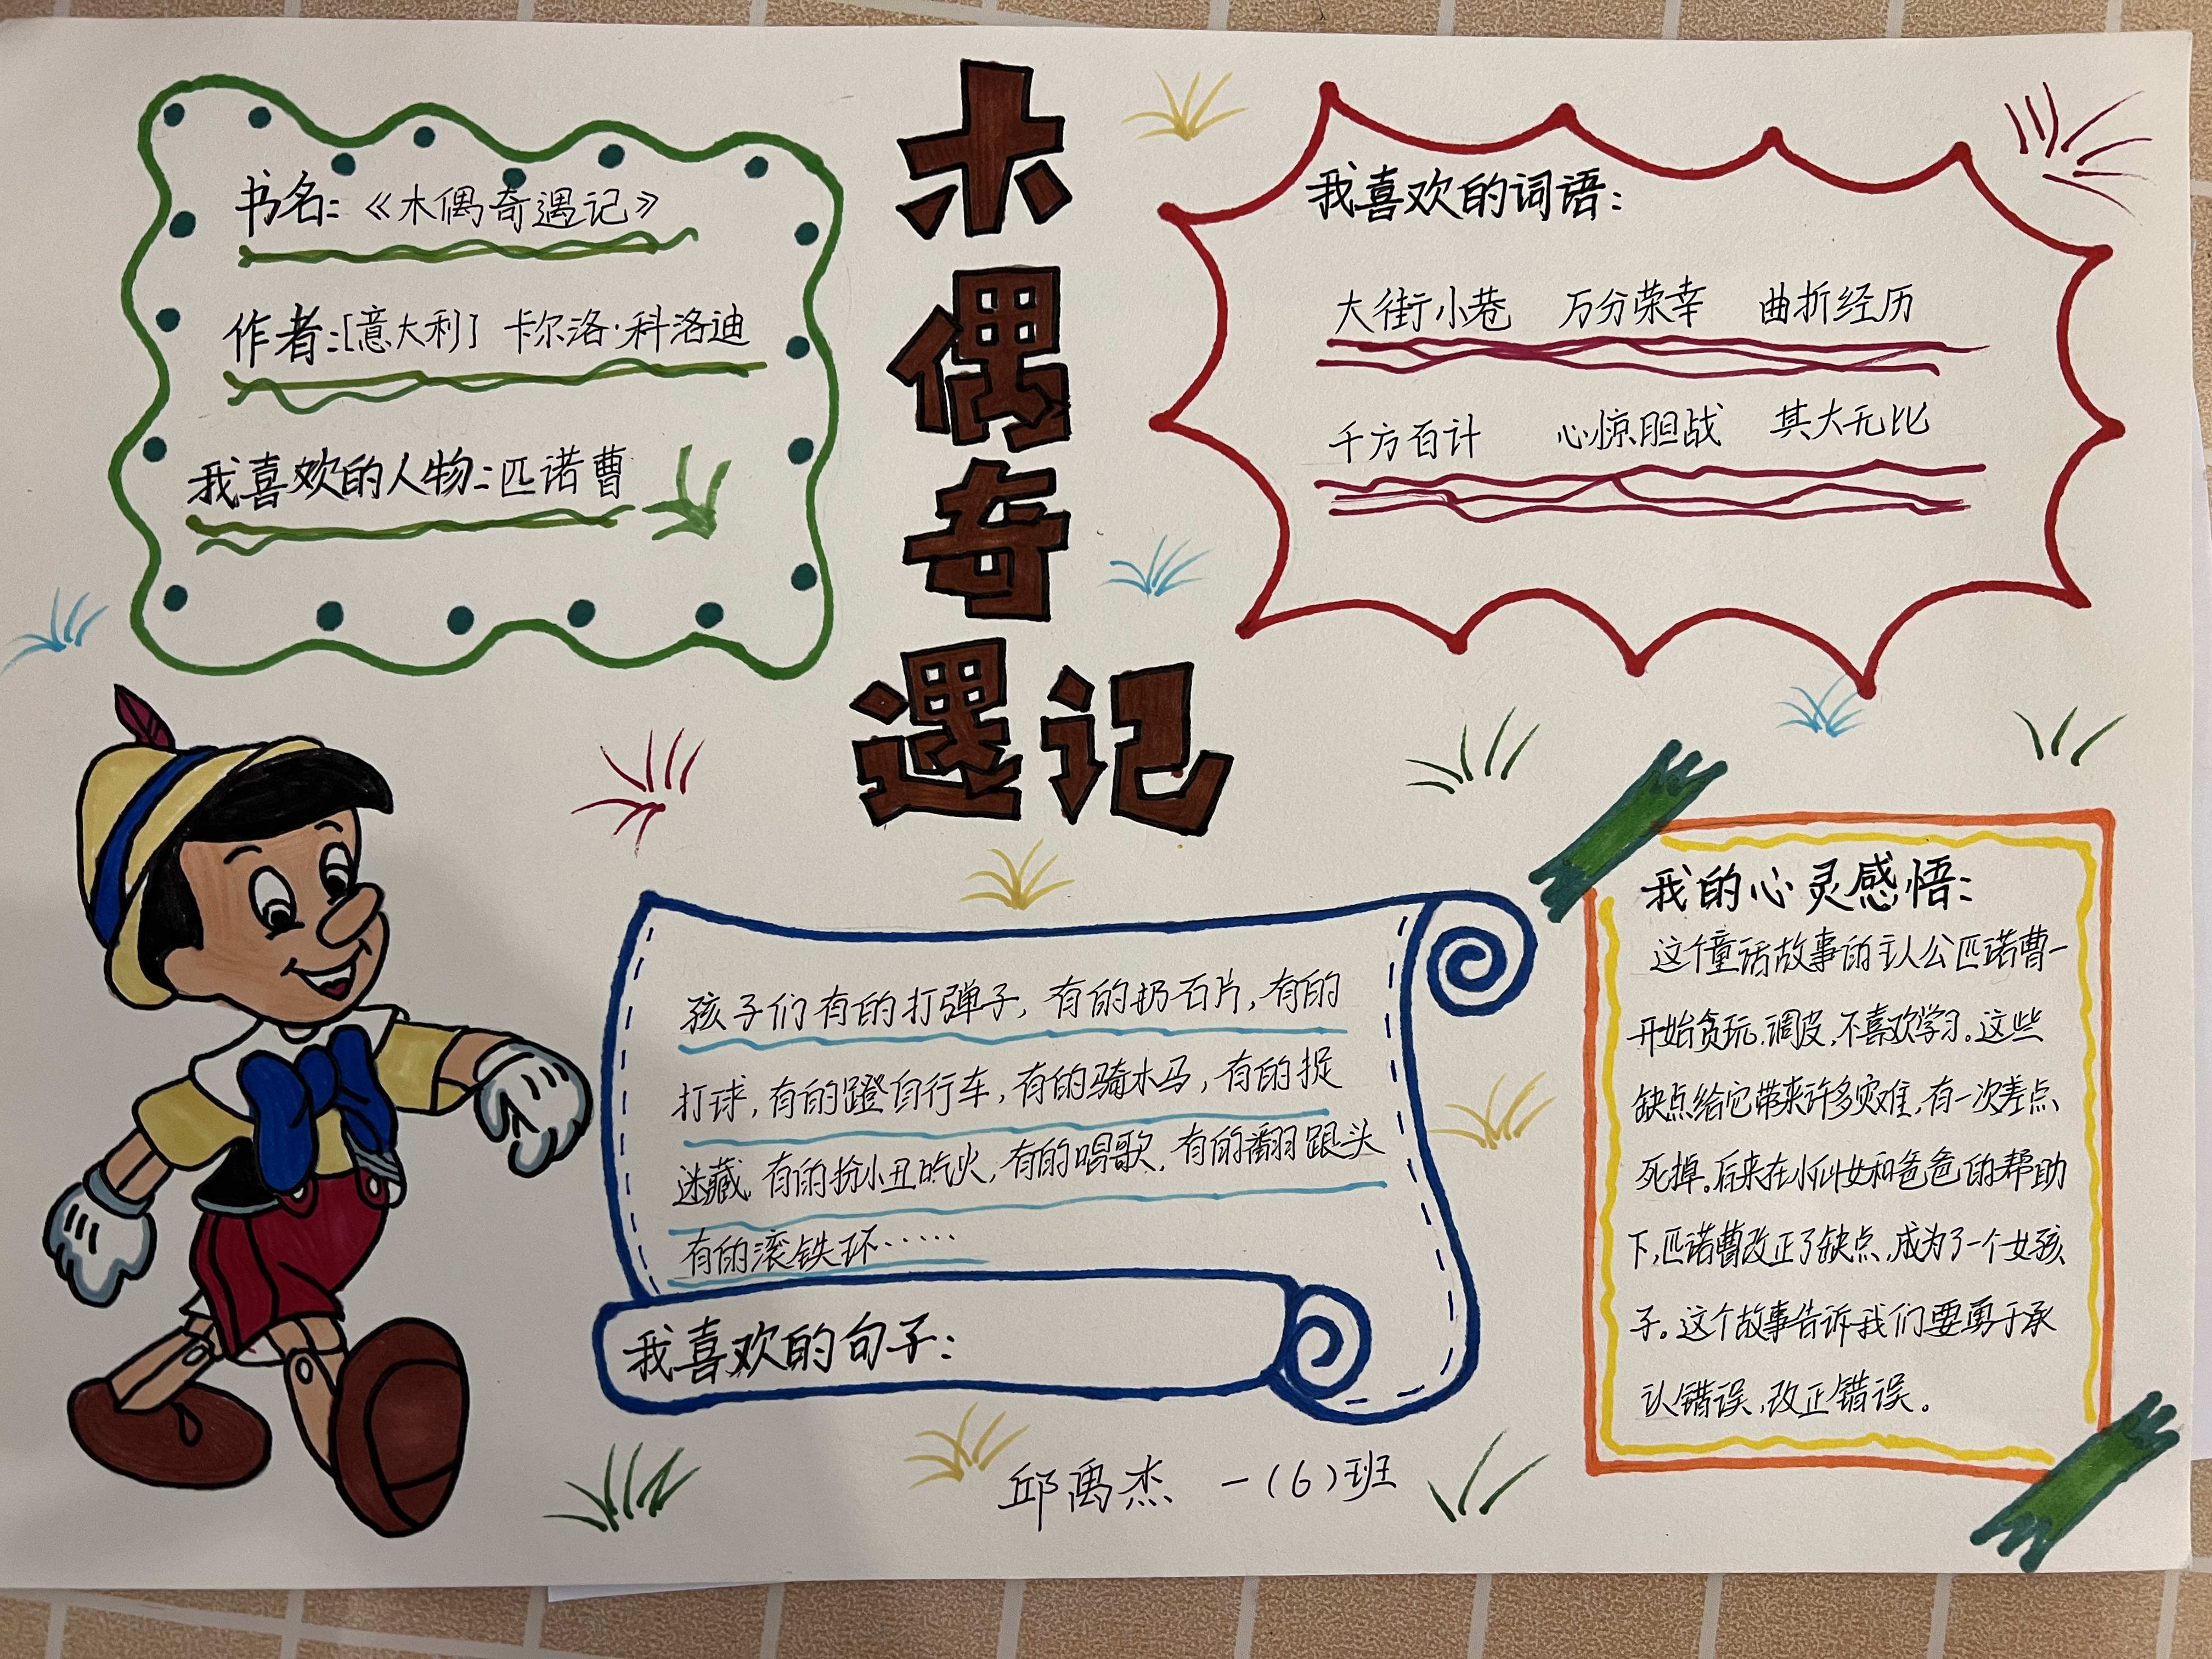 木偶奇遇记
书名:《木偶奇遇记》
作者:[意大利] 卡尔洛·科洛迪
我喜欢的人物:匹诺曹
我喜欢的词语:
大街小巷 万分荣幸 曲折经历
千方百计 心惊胆战 其大无比
孩子们有的打弹子,有的扔石片,有的
打球,有的蹬自行车,有的骑木马,有的捉
迷藏,有的扮小丑吃火,有的唱歌,有的翻跟头
有的滚铁环……
我喜欢的句子:
我的心灵感悟:
这个童话故事的主人公匹诺曹一
开始贪玩,调皮,不喜欢学习。这些
缺点给它带来许多灾难,有一次差点
死掉。后来在小仙女和爸爸的帮助
下,匹诺曹改正了缺点,成为了一个女孩
子。这个故事告诉我们要勇于承
认错误,改正错误。
邱禹杰 一(6)班